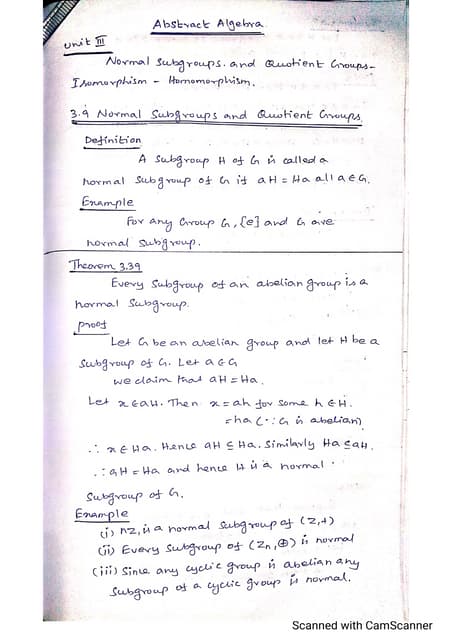 Abstract Algebra
Unit III
Normal Subgroups. and Quotient Groups-
Isomorphism - Homomorphism.
3.9 Normal Subgroups and Quotient Groups.
Definition
A Subgroup H of G is called a
normal Subgroup of G if aH = Ha all a ∈ G.
Example
For any Group G, {e} and G are
normal Subgroup.
Theorem 3.39
Every Subgroup of an abelian group is a
normal Subgroup.
Proof
Let G be an abelian group and let H be a
Subgroup of G. Let a ∈ G
we claim that aH = Ha.
Let x ∈ aH. Then x = ah for some h ∈ H.
= ha (∵ G is abelian)
∴ x ∈ Ha. Hence aH ⊆ Ha. Similarly Ha ⊆ aH.
∴ aH = Ha and hence H is a normal
Subgroup of G.
Example
(i) nZ, is a normal Subgroup of (Z,+)
(ii) Every Subgroup of (Zn, ⊕) is normal
(iii) Since any cyclic group is abelian any
Subgroup of a cyclic group is normal.
Scanned with CamScanner